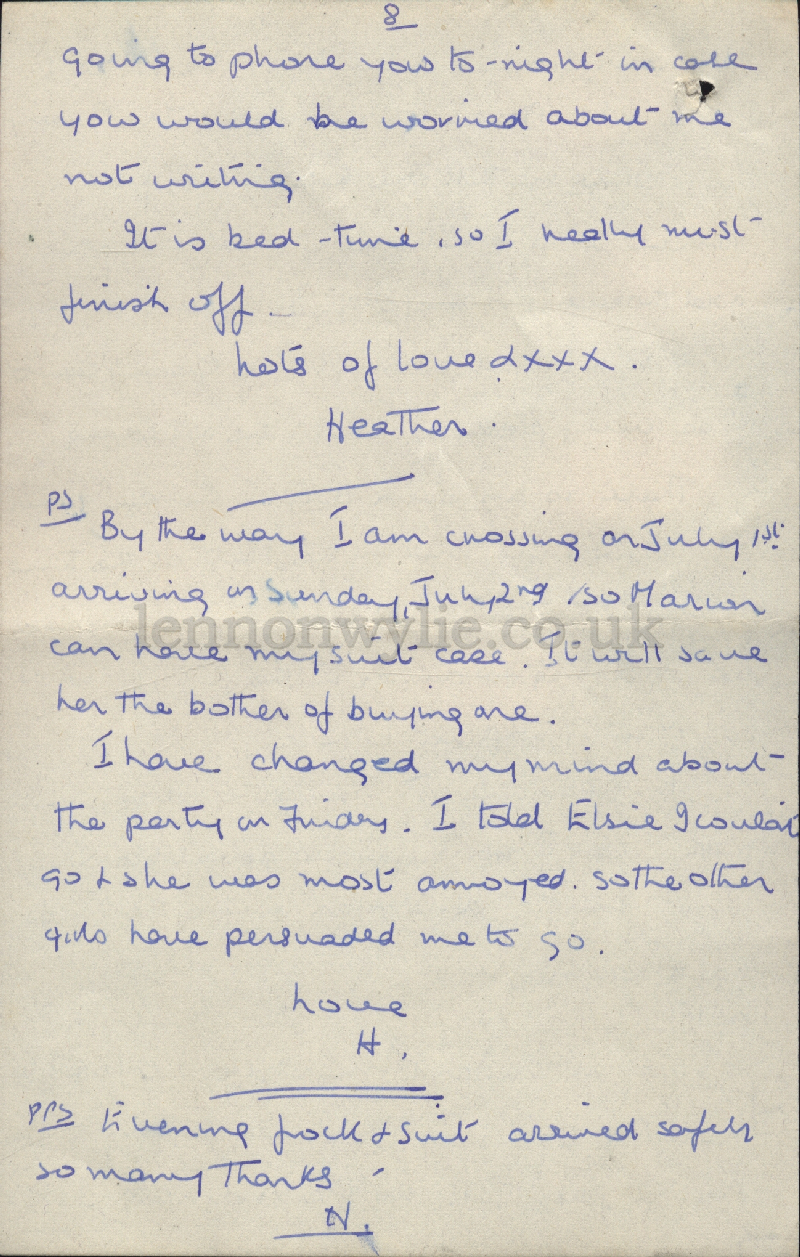 8
going to phone you to-night in case
you would be worried about me
not writing.
It is bed-time, so I really must
finish off.
Lots of love & xxx.
Heather.
PS
By the way I am crossing on July 1st
arriving on Sunday, July 2nd, so Marion
lennonwylie.co.uk
can have my suit case. It will save
her the bother of buying one.
I have changed my mind about
the party on Friday. I told Elsie I couldn't
go & she was most annoyed. So the other
girls have persuaded me to go.
Love
H.
PPS Evening frock & suit arrived safely
so many thanks
H.